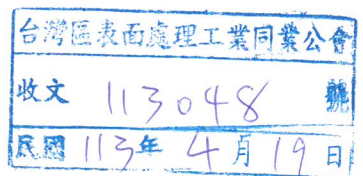 台灣區表面處理工業同業公會
收文 113048 號
民國 113年 4月 19日